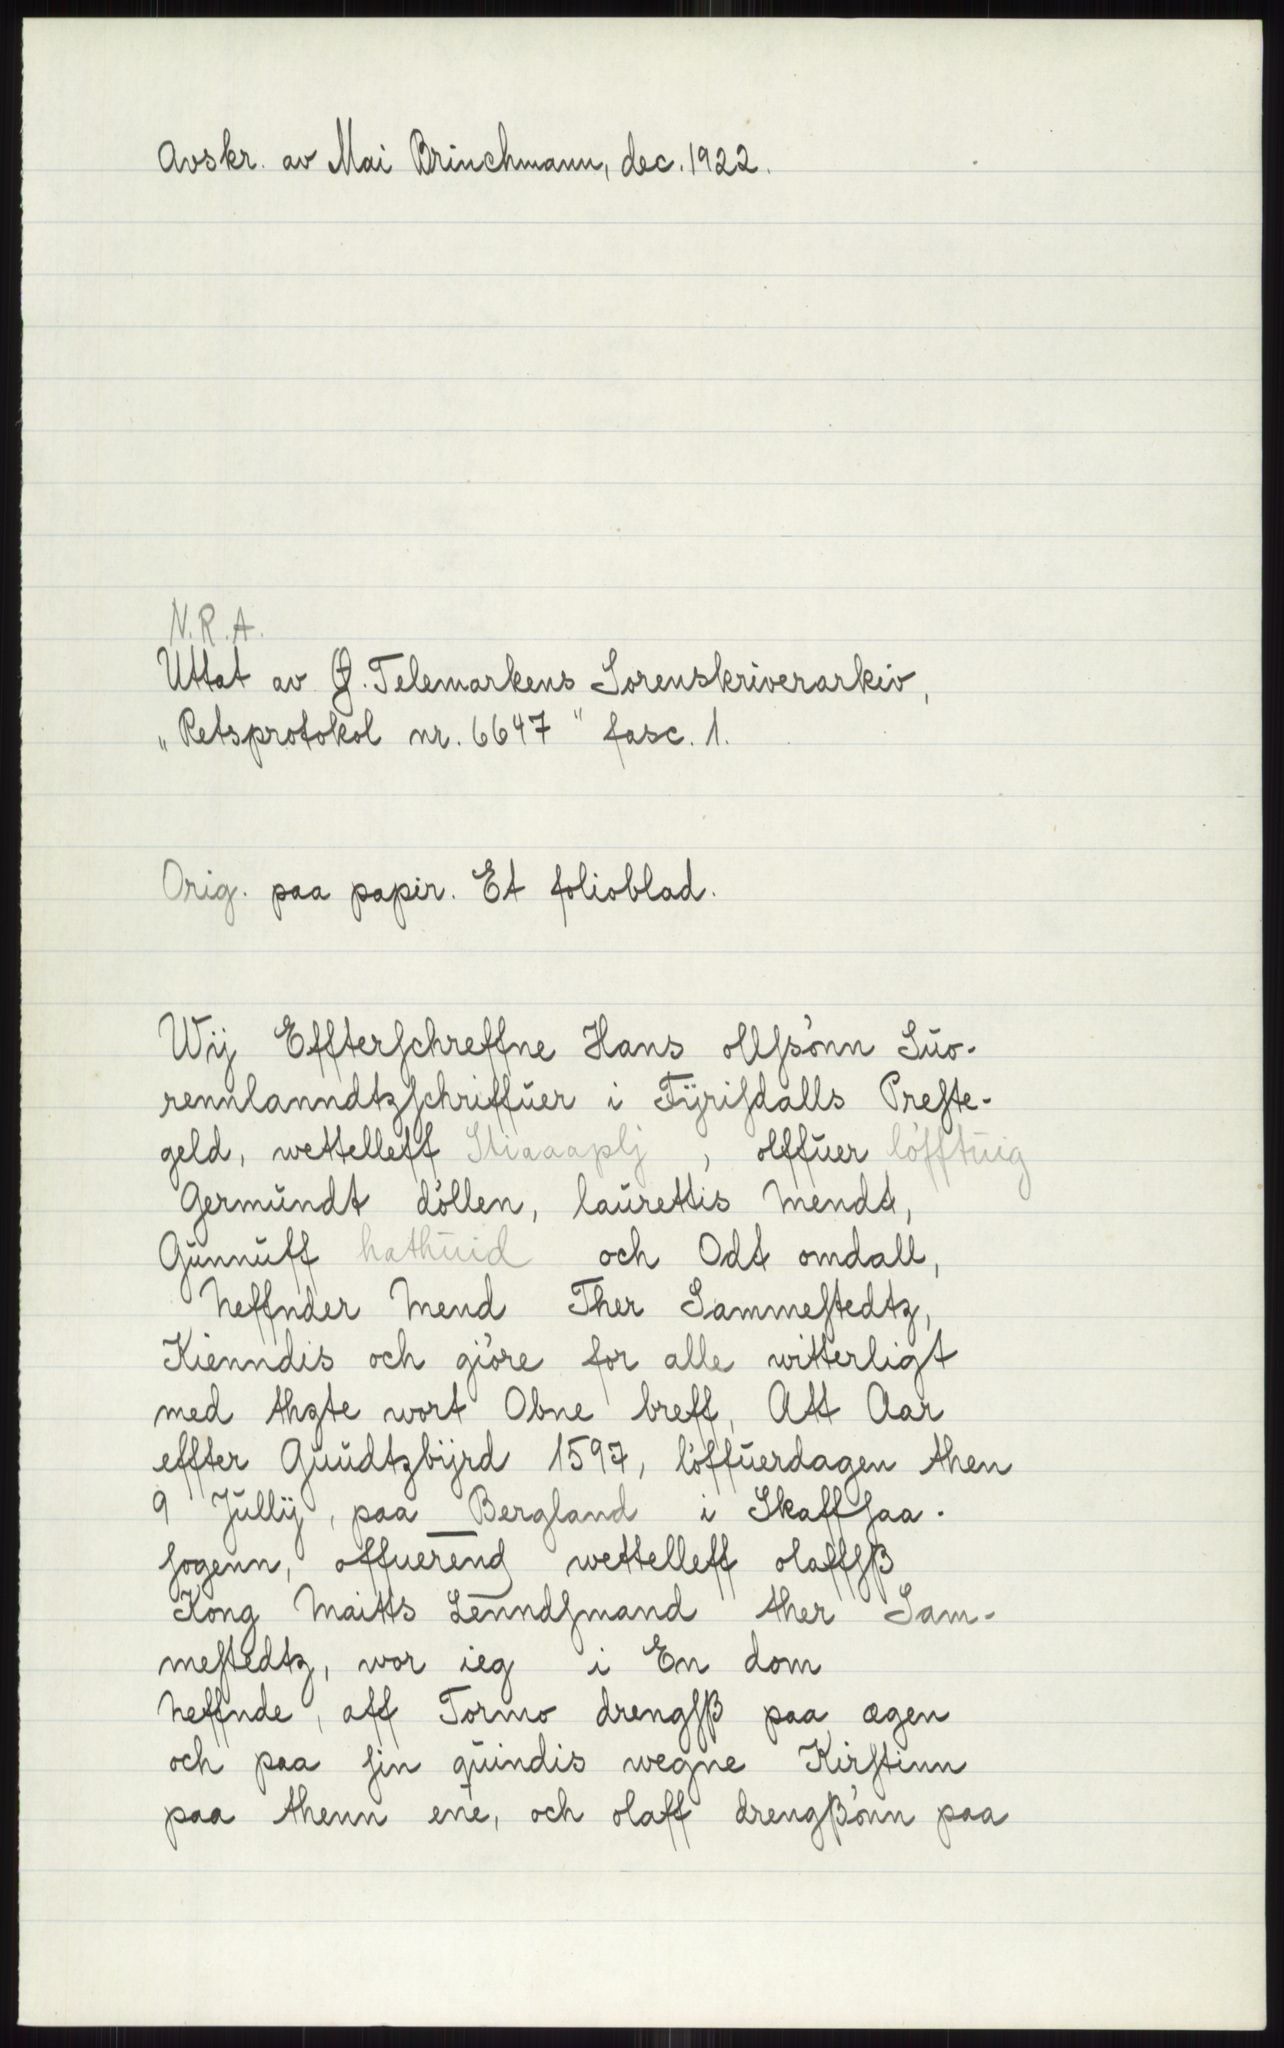 Avskr. av Mai Brinchmann, dec. 1922.
N.R.A.
Uttat av Ø. Telemarkens Sorenskriverarkiv,
„Retsprotokol nr. 6647" fasc. 1.
Orig. paa papir. Et folioblad.
Wij Effterſchreffne Hans ollſsönn Suo-
rennlanndtzſchriffuer i Tÿriſdalls Preſte-
geld, wettelleff , olffuer löfftuig
Germundt döllen, laurettis mendt,
Gunnuff hathuid och Odt omdall,
Neffnder mend Ther Sammeſtedtz,
Kienndis och giöre for alle witterligt
med thzte wort Obne breff, Att Aar
effter Guudtzbÿrd 1597, löffuerdagen then
9 Jullÿ, paa Bergland i Skaffſaa-
ſogenn, offuerend wettelleff olaffſß
Kong Maitts Lenndſmand ther Sam-
meſtedtz, wor ieg i En dom
Neffnde, aff Tormo drengſß paa ægen
och paa ſin quindis wegne Kirſtinn
paa thenn ene, och olaff drengßönn paa